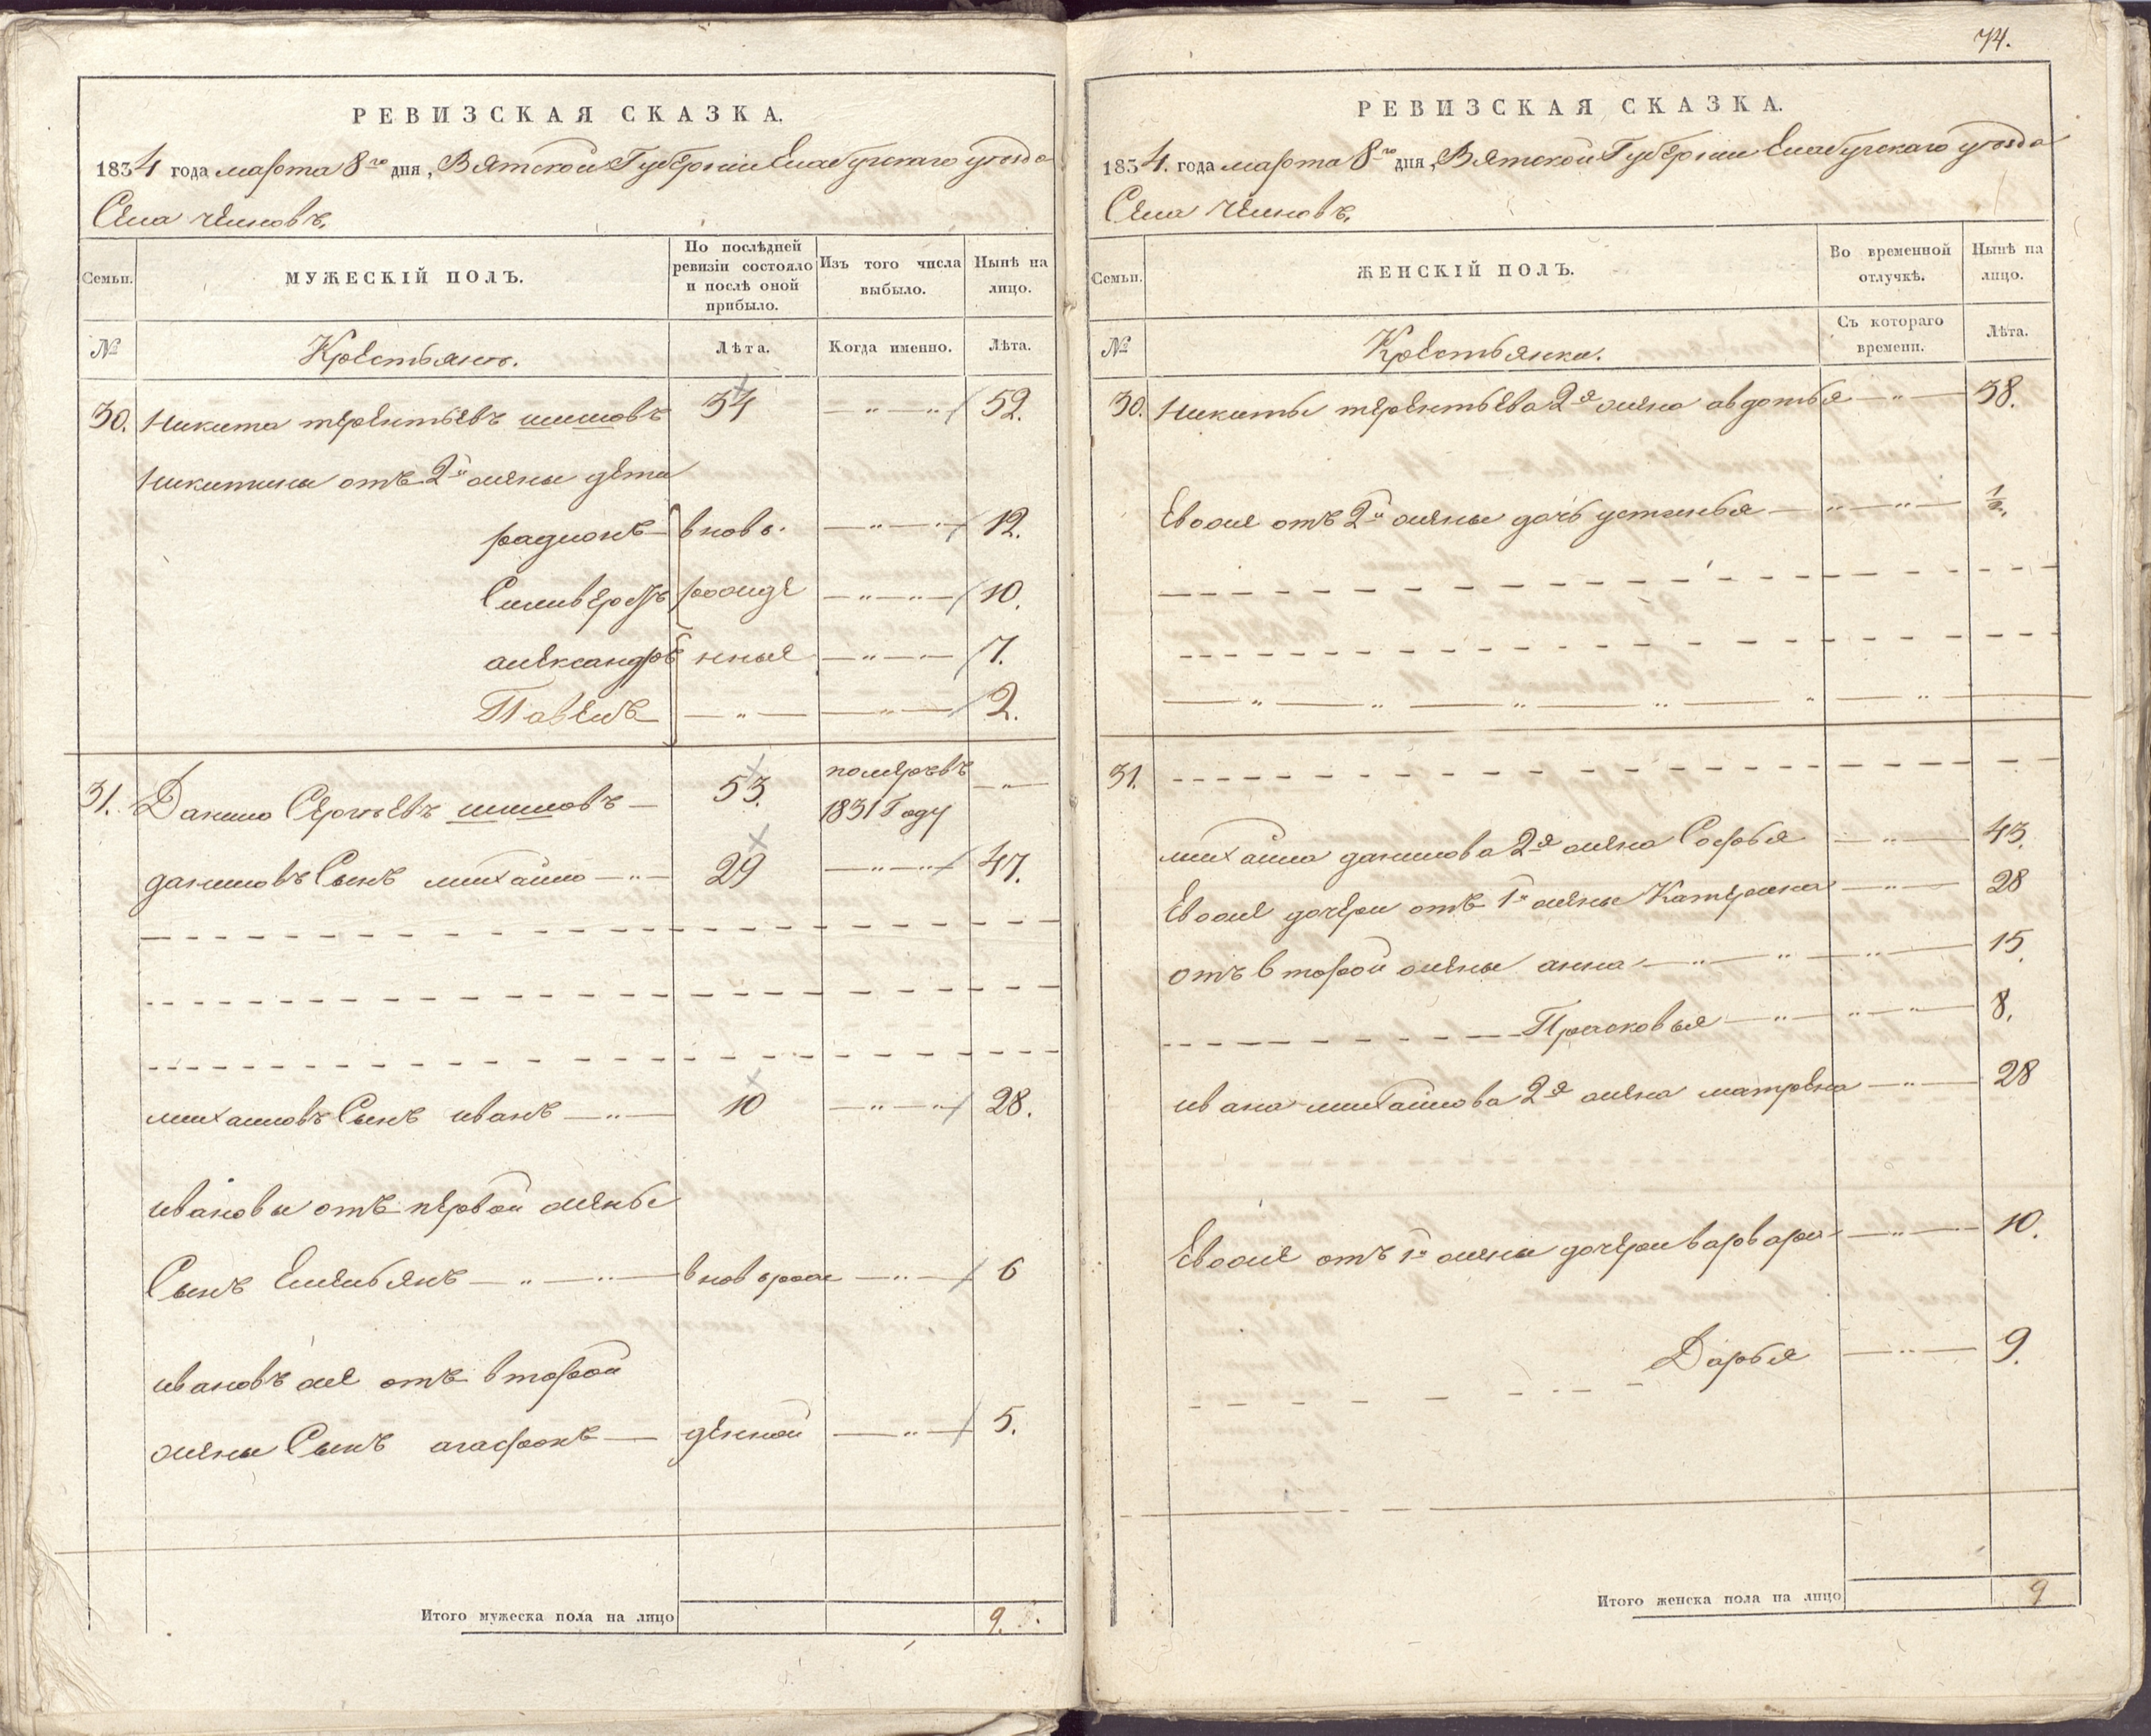 РЕВИЗСКАЯ СКАЗКА.
1834 года марта 8го дня, Вятской Губернiи Елабугскаго уезда
Села челновъ.
Семьи.
МУЖЕСКIЙ ПОЛЪ.
По послѣдней ревизiи состояло и послѣ оной прибыло.
Изъ того числа выбыло.
Нынѣ на лицо.
№
Крестьянъ.
Лѣта.
Когда именно.
Лѣта.
30. Никита терентьевъ шишовъ 34 52.
Никитины отъ 2й жены дети
радионъ вновь 12.
Силиверстъ рожде 10.
александръ нные 7.
Павелъ 2.
31. Данило Сергѣевъ шишовъ 53. померъ въ 1831 Году
даниловъ Сынъ михайло 29 47.
михайловъ Сынъ иванъ 10 28.
ивановы отъ первой жены
Сынъ Емельянъ вновь рож 6
ивановъ же отъ второй
жены Сынъ агафонъ денной 5.
Итого мужеска пола на лицо 9.
74.
РЕВИЗСКАЯ СКАЗКА.
1834. года марта 8го дня, Вятской Губернiи Елабугскаго уезда
Села Челновъ.
Семьи.
ЖЕНСКIЙ ПОЛЪ.
Во временной отлучкѣ.
Нынѣ на лицо.
№
Крестьянка.
Съ котораго времени.
Лѣта.
30. Никиты терентьева 2я жена авдотья 38.
Ево же отъ 2й жены дочь устинья 1/2.
31.
михайла данилова 2я жена Софья 43.
Ево же дочери отъ 1й жены Катерина 28
отъ второй жены анна 15.
Прасковья 8.
ивана михайлова 2я жена матрена 28
Ево же отъ 1й жены дочери варвара 10.
Дарья 9.
Итого женска пола на лицо 9